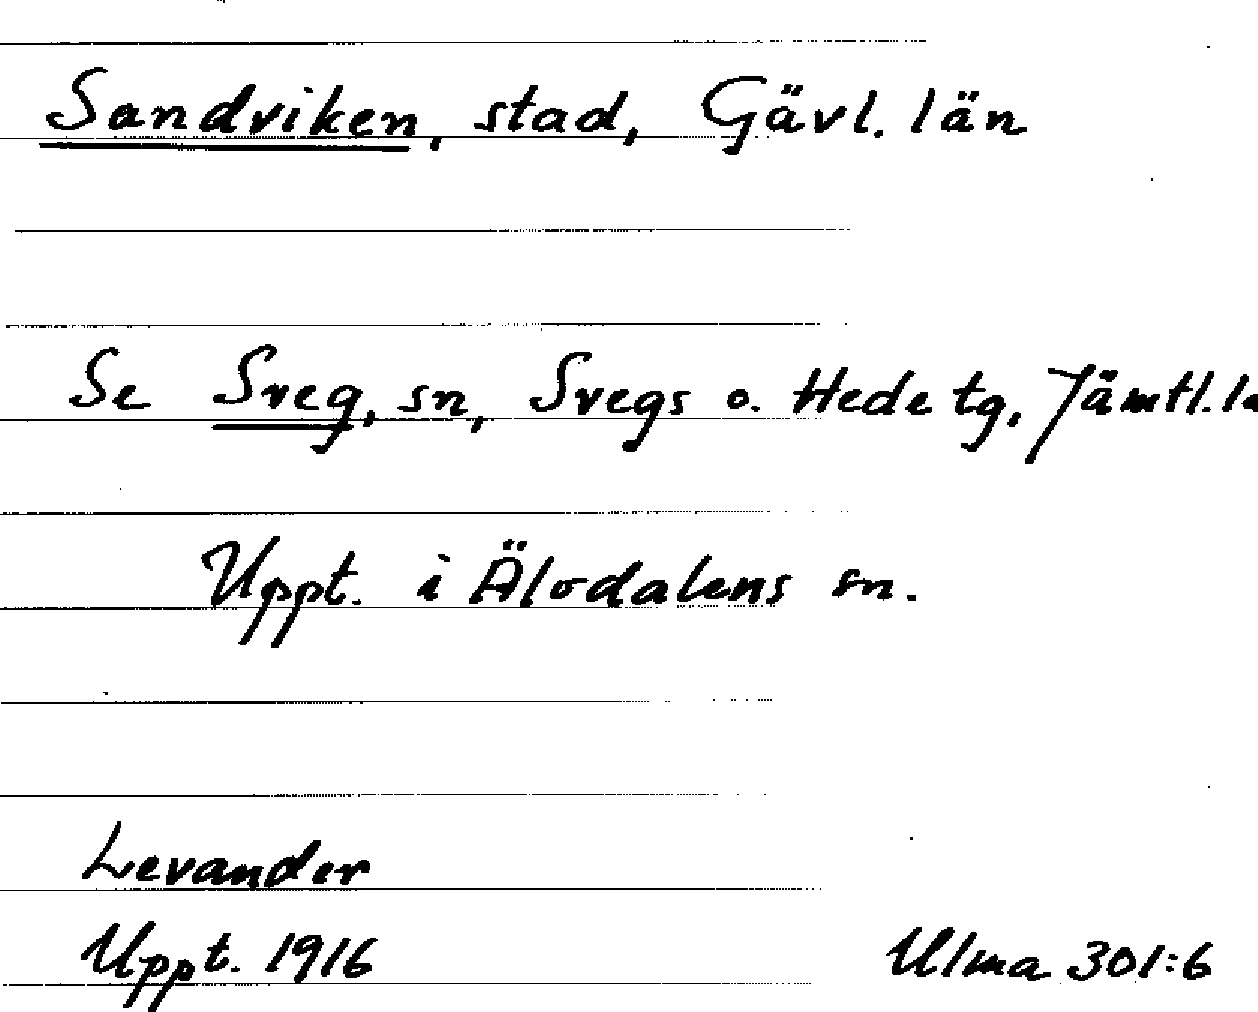 Sandviken, stad, Gävl. län
Se Sveg, sn, Svegs o. Hede tg, Jämtl. lä
Uppt. i Älvdalens sn.
Levander
Uppt. 1916 Ulma 301:6